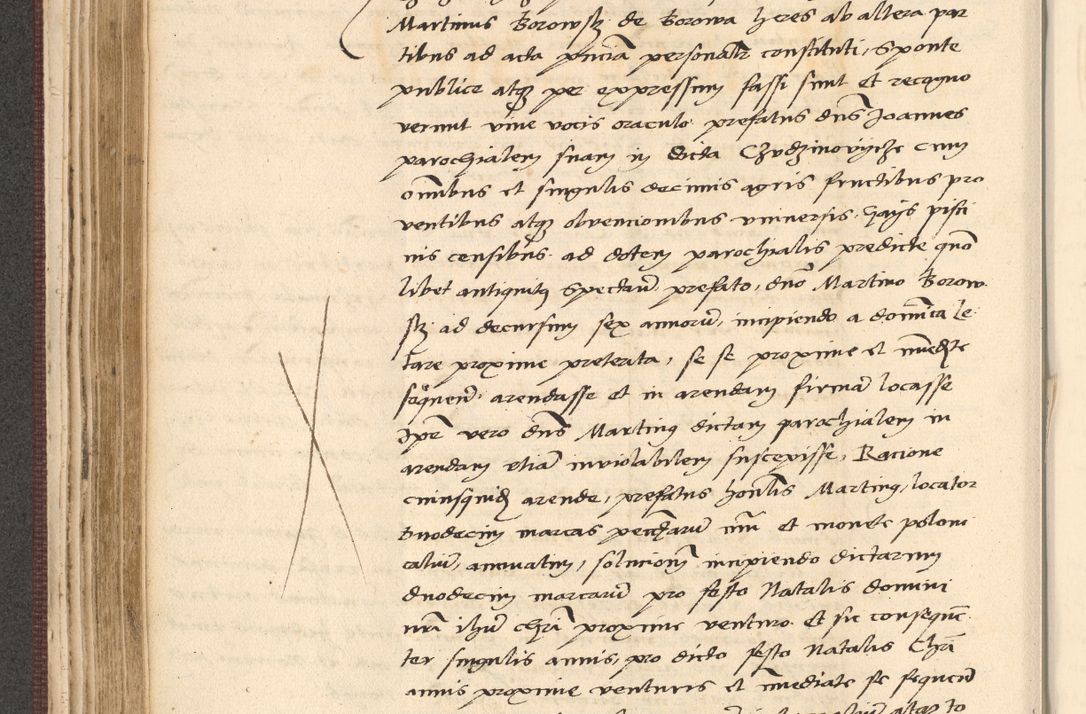 Martinus Borowsky de Borowa heres ab altera par
tibus ad acta pncia personalr constituti, sponte
publice atqz per expressum fassi sunt et recogno
verunt vive vocis oraculo prefatus dns Joannes
parochialem suam in dicta Chudzinoviicze cum
omibus et singulis decimis agris fructibus pro
ventibus atqz obvencionibus universis, gays pisci
nis censibus ad dotem parochialis predicte quo
libet antiquitq spectan, prefato, dno Martino Borow
sky ad decursum sex annoru, incipiendo a domica Le
tare proxime preterita, se se proxime et immediate
sequen, arendasse et in arendam firma locasse
Ipe vero dns Martinq dictam parochialem in
arendam etia inviolabilem suscepisse, Racione
cuiusquidz arende, prefatus honlis Martinq, locator
duodecim marcas pecuniaru nui et monete poloni
caliu, annuatim, soluciom incipiendo dictarum
duodecim marcaru pro festo Natalis domini
nri ihu chri proxime venturo. Et sic consequen
ter singulis annis, pro dicto festo Natalis Chri
annis proxime venturis et immediate se sequen
atqz to